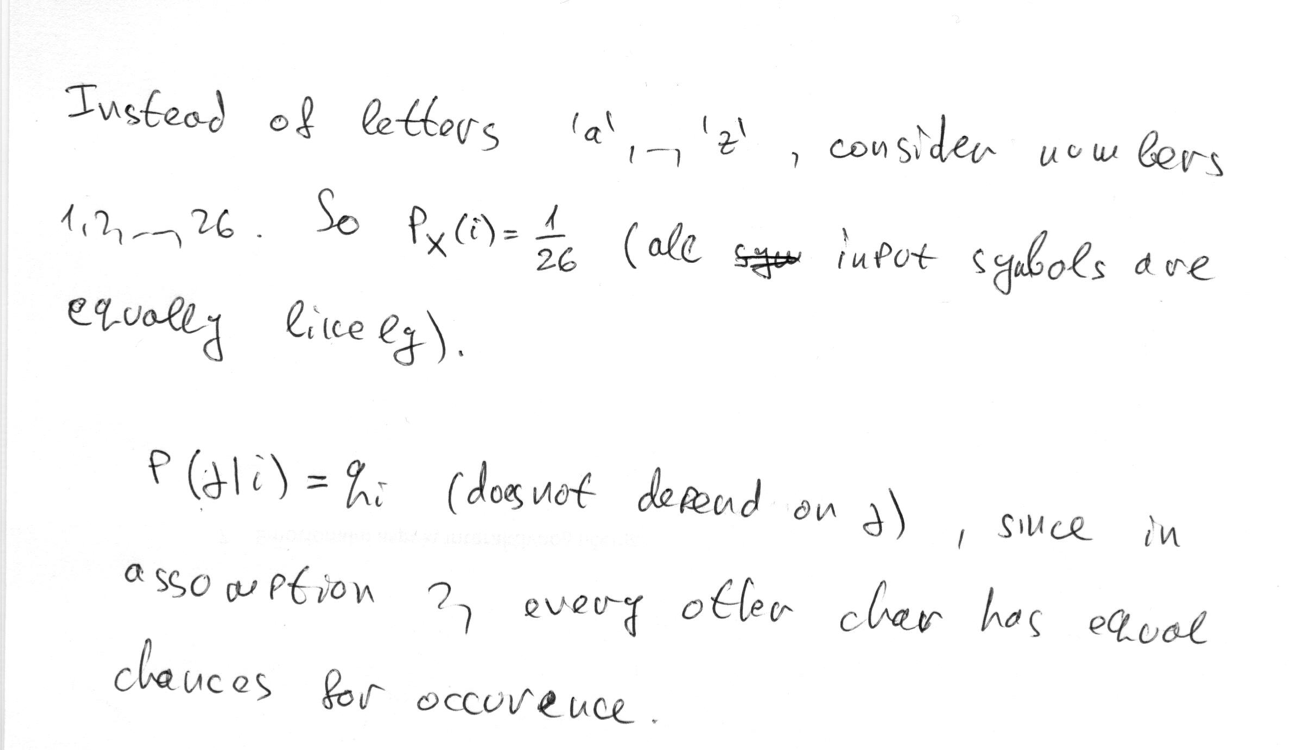 Instead of letters 'a', ..., 'z', consider numbers
1, 2, ..., 26. So P_X(i) = 1/26 (all input symbols are
equally likely).
P(j|i) = q_i (does not depend on j), since in
assumption 2, every other char has equal
chances for occurence.